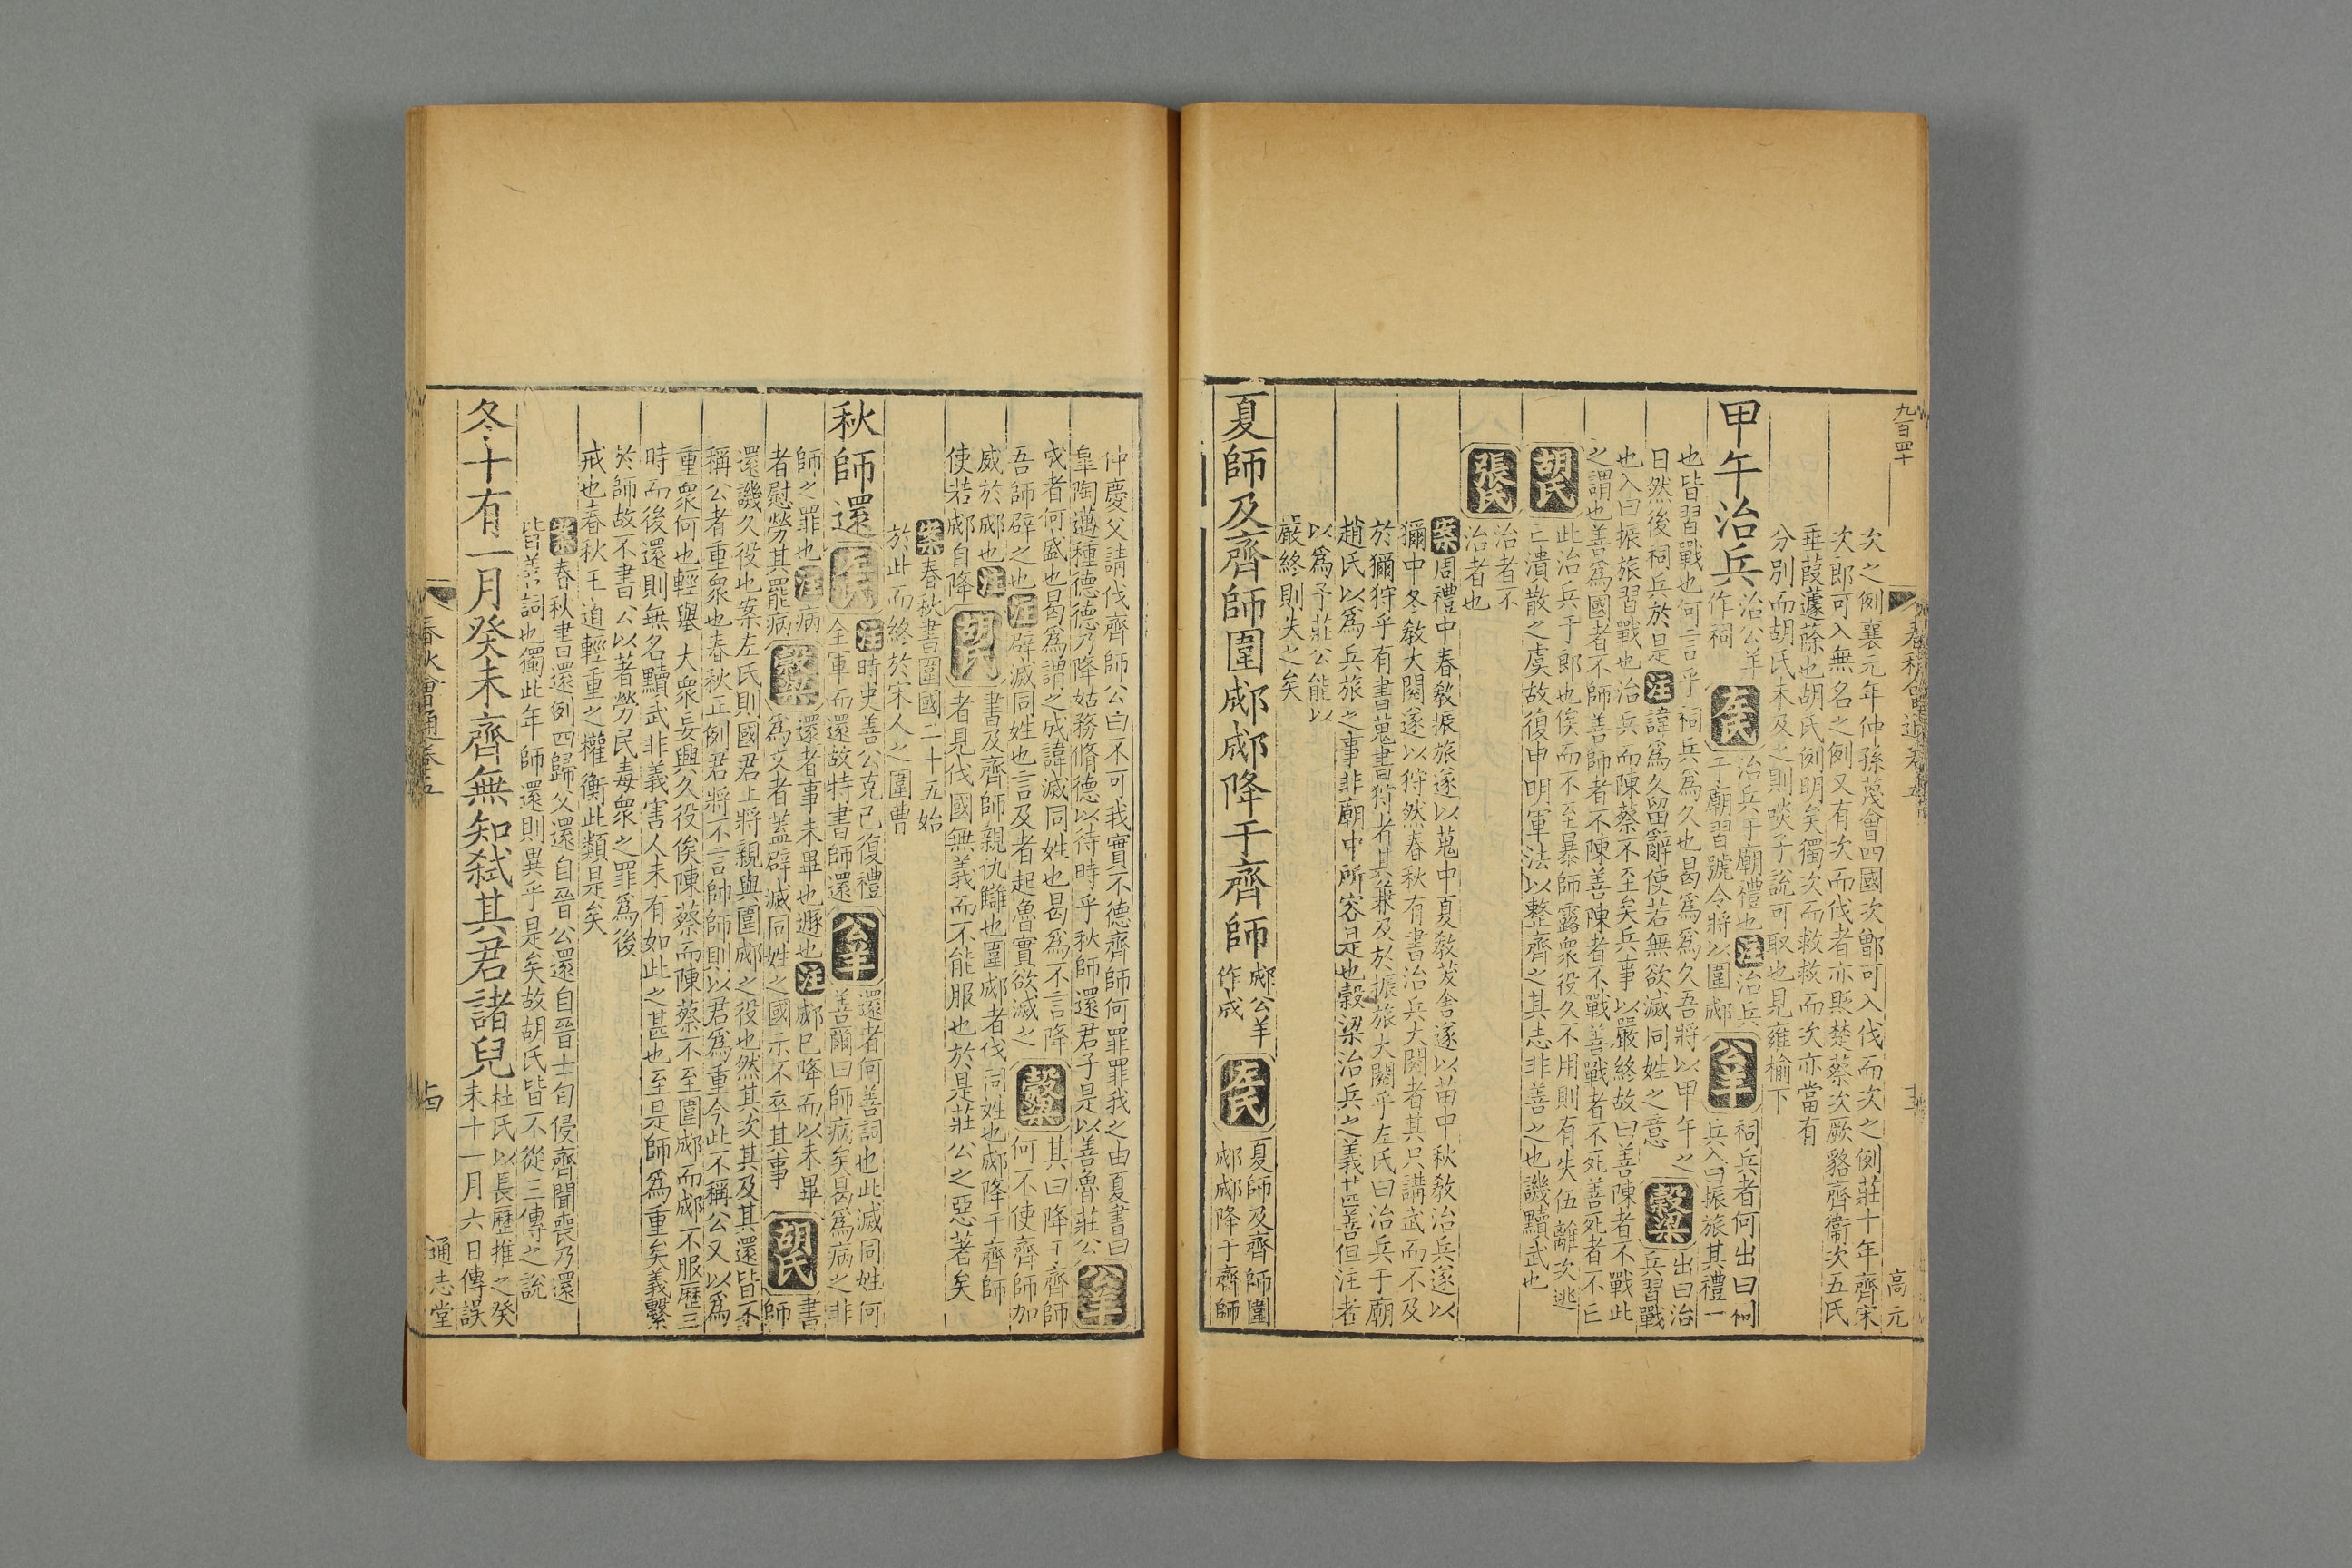 九百四十
春秋會通卷五
高元
次之例襄元年仲孫蔑會四國次鄫可入伐而次之例莊十年齊宋
次郎可入無名之例又有次而伐者亦㸃楚蔡次厥貉齊衞次五氏
垂葭蘧蒢也胡氏例明矣獨次而救救而次亦當有
分別而胡氏未及之則啖子說可取也見雍榆下
甲午治兵
治公羊
作祠
左氏
治兵于廟禮也注治兵
于廟習號令將以圍郕
公羊
祠兵者何出曰祠
兵入曰振旅其禮一
也皆習戰也何言乎祠兵爲久也曷爲爲久吾將以甲午之
日然後祠兵於是注諱爲久留辭使若無欲滅同姓之意
穀梁
出曰治
兵習戰
也入曰振旅習戰也治兵而陳蔡不至矣兵事以嚴終故曰善陳者不戰此
之謂也善爲國者不師善師者不陳善陳者不戰善戰者不死善死者不亡
胡氏
此治兵于郎也俟而不至暴師露衆役久不用則有失伍離次逃
亡潰散之虞故復申明軍法以整齊之其志非善之也譏黷武也
張氏
治者不
治者也
案周禮中春敎振旅遂以蒐中夏敎茇舍遂以苗中秋敎治兵遂以
獮中冬敎大閱遂以狩然春秋有書治兵大閱者其只講武而不及
於獮狩乎有書蒐書狩者其兼及於振旅大閱乎左氏曰治兵于廟
趙氏以爲兵旅之事非廟中所容是也穀梁治兵之義甘匹善但注者
以爲予莊公能以
嚴終則失之矣
夏師及齊師圍郕郕降于齊師
郕公羊
作成
左氏
夏師及齊師圍
郕郕降于齊師
仲慶父請伐齊師公曰不可我實不德齊師何罪罪我之由夏書曰
皐陶邁種德德乃降姑務脩德以待時乎秋師還君子是以善魯莊公
公羊
成者何盛也曷爲謂之成諱滅同姓也曷爲不言降
吾師辟之也注辟滅同姓也言及者起魯實欲滅之
穀梁
其曰降于齊師
何不使齊師加
威於郕也注
使若郕自降
胡氏
書及齊師親仇讎也圍郕者伐同姓也郕降于齊師
者見伐國無義而不能服也於是莊公之惡著矣
案春秋書圍國二十五始
於此而終於宋人之圍曹
秋師還
左氏
注時史善公克己復禮
全軍而還故特書師還
公羊
還者何善詞也此滅同姓何
善爾曰師病矣曷爲病之非
師之罪也注病
者慰勞其罷病
穀梁
還者事未畢也遯也注郕已降而以未畢
爲文者蓋辟滅同姓之國示不卒其事
胡氏
書
師
還譏久役也案左氏則國君上將親與圍郕之役也然其次其及其還皆不
稱公者重衆也春秋正例君將不言帥師則以君爲重今此不稱公又以爲
重衆何也輕舉大衆妄興久役俟陳蔡而陳蔡不至圍郕而郕不服歷三
時而後還則無名黷武非義害人未有如此之甚也至是師爲重矣義繫
於師故不書公以著勞民毒衆之罪爲後
戒也春秋王道輕重之權衡此類是矣
案春秋書還例四歸父還自晉公還自晉士匄侵齊聞喪乃還
皆善詞也獨此年師還則異乎是矣故胡氏皆不從三傳之說
冬十有一月癸未齊無知弑其君諸兒
杜氏以長歷推之癸
未十一月六日傳誤
春秋會通卷五
十四
通志堂